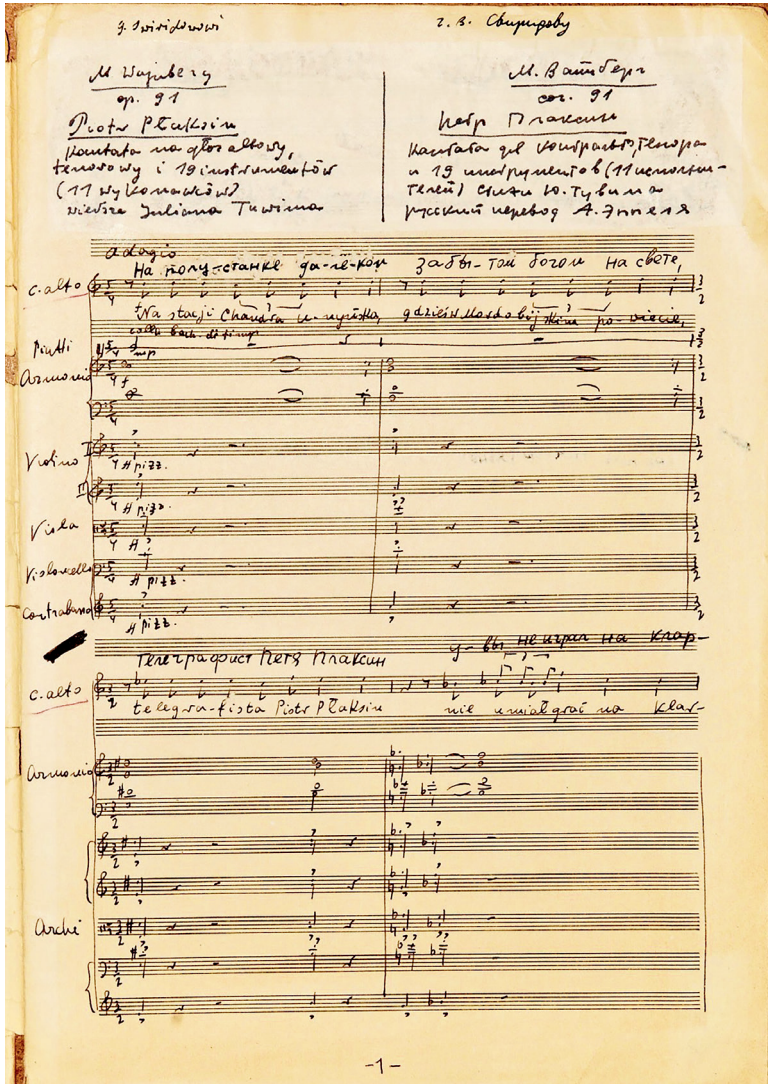 J. Swiridowowi
Г. В. Свиридову
M Wajnberg
op. 91
Piotr Płaksin
Kantata na głos altowy,
tenorowy i 19 instrumentów
(11 wykonawców)
wiersze Juliana Tuwima
М. Вайнберг
соч. 91
Петр Плаксин
Кантата для контральто, тенора
и 19 инструментов (11 исполни-
телей) стихи Ю. Тувима
русский перевод А. Эппеля
adagio
На полу-станке да-лё-ком забы-том богом на свете,
c. alto
Na stacji Chandra U-nyńska, gdzieś w Mordobijskim po-wiecie,
Piatti
mp
Armonio
f
Violino I
pizz.
II
pizz.
Viola
Violoncello
pizz.
Contrabasso
pizz.
Телеграфист Петя Плаксин у-вы не играл на клар-
c. alto
telegra-fista Piotr Płaksin nie umiał grać na klar-
Armonio
Archi
-1-